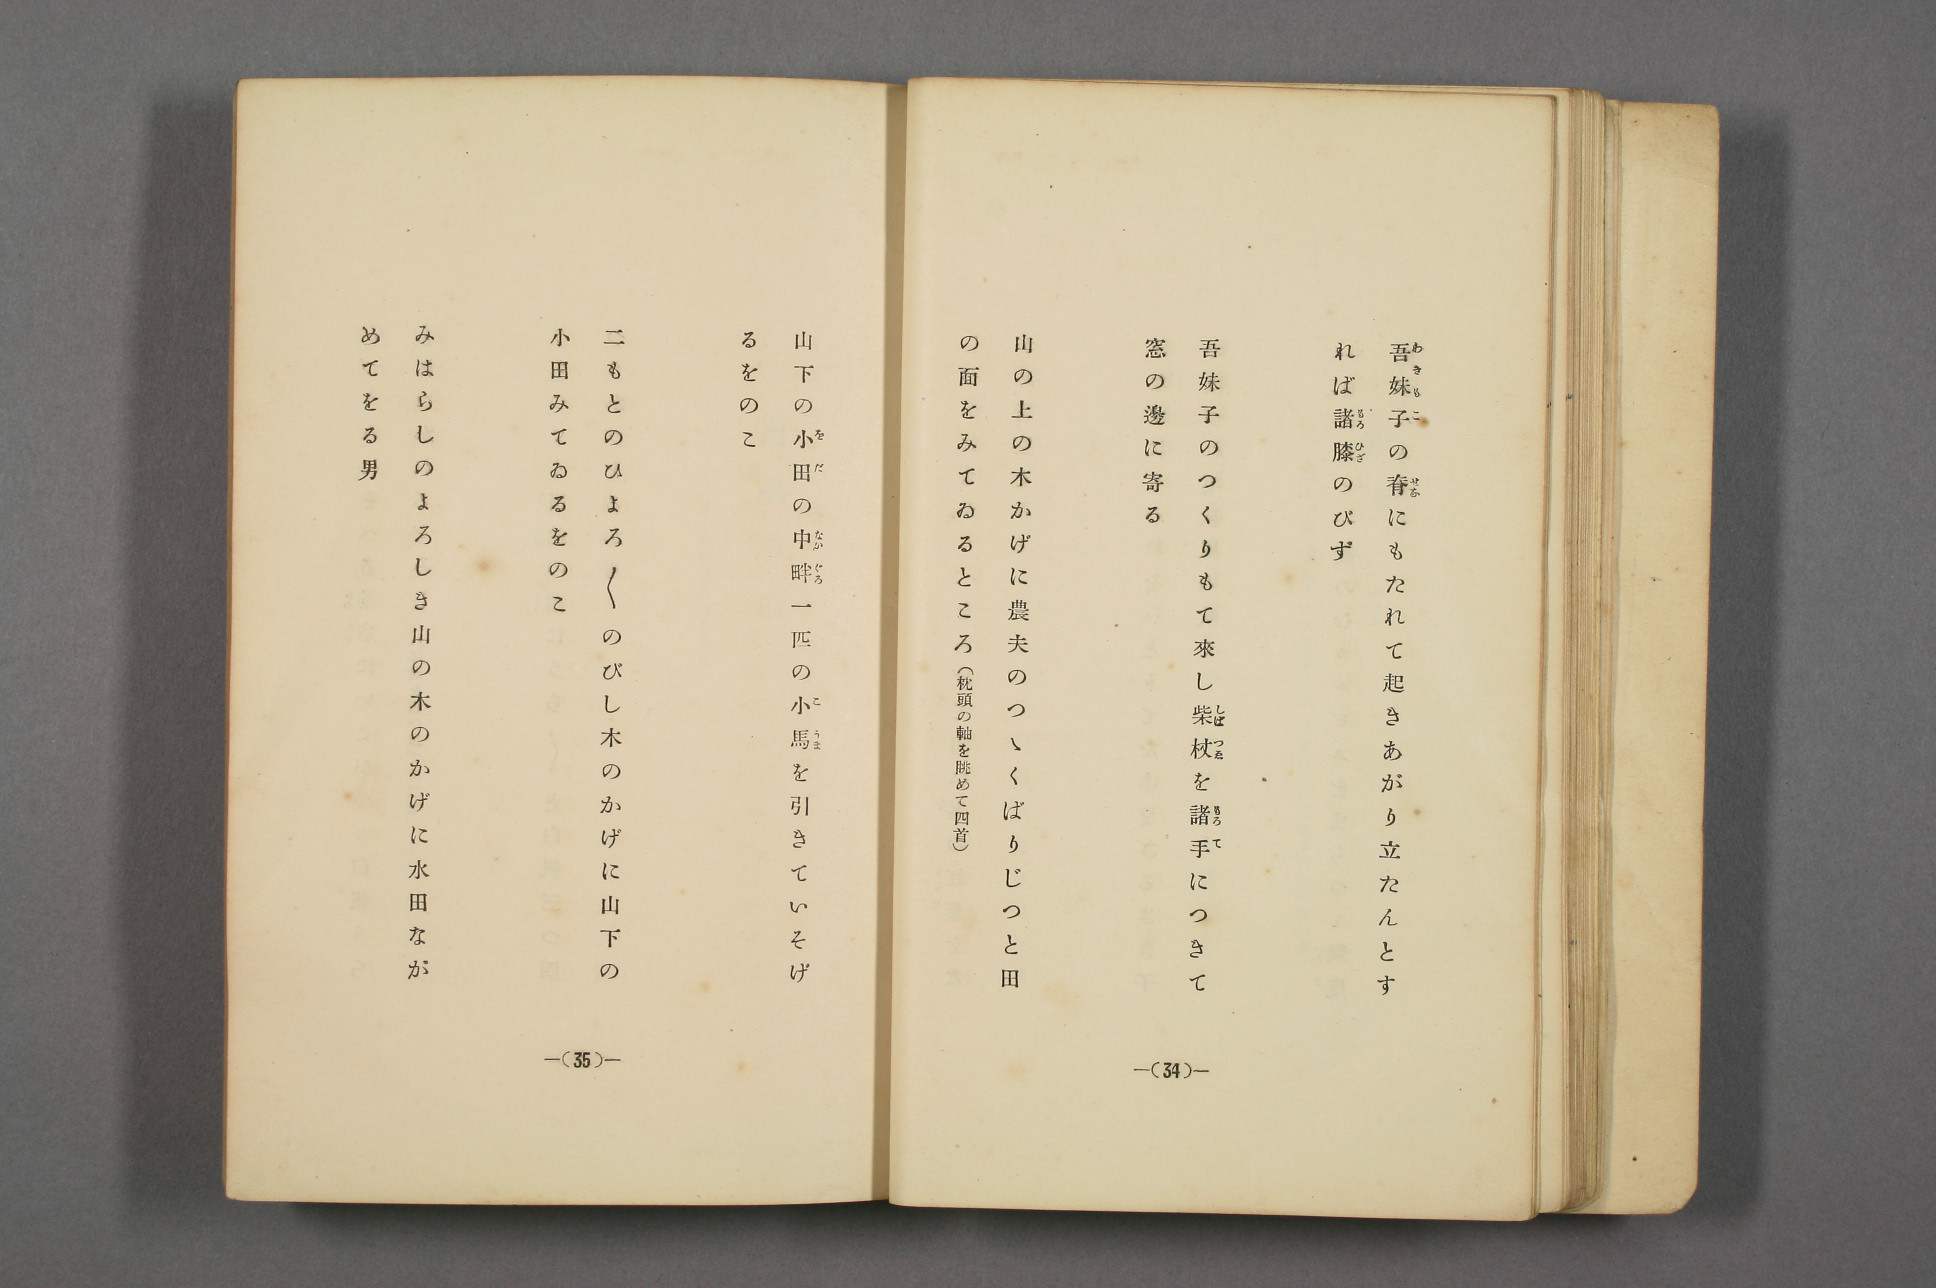 吾妹子の脊にもたれて起きあがり立たんとす
れば諸膝のびず
吾妹子のつくりもて來し柴杖を諸手につきて
窓の邊に寄る
山の上の木かげに農夫のつゝくばりじつと田
の面をみてゐるところ（枕頭の軸を眺めて四首）
―(34)―
山下の小田の中畔一匹の小馬を引きていそげ
るをのこ
二もとのひよろ〳〵のびし木のかげに山下の
小田みてゐるをのこ
みはらしのよろしき山の木のかげに水田なが
めてをる男
―(35)―